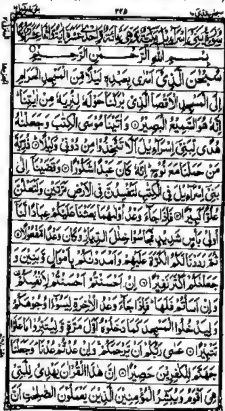 ٢٢٥
بِسْمِ اللّٰهِ الرَّحْمٰنِ الرَّحِيْمِ
سُبْحٰنَ الَّذِيْۤ اَسْرٰى بِعَبْدِهٖ لَيْلًا مِّنَ الْمَسْجِدِ الْحَرَامِ
اِلَى الْمَسْجِدِ الْاَقْصَا الَّذِيْ بٰرَكْنَا حَوْلَهٗ لِنُرِيَهٗ مِنْ اٰيٰتِنَا
اِنَّهٗ هُوَ السَّمِيْعُ الْبَصِيْرُ ۝ وَاٰتَيْنَا مُوْسَى الْكِتٰبَ وَجَعَلْنٰهُ
هُدًى لِّبَنِيْۤ اِسْرَآءِيْلَ اَلَّا تَتَّخِذُوْا مِنْ دُوْنِيْ وَكِيْلًا ۝ ذُرِّيَّةَ
مَنْ حَمَلْنَا مَعَ نُوْحٍ اِنَّهٗ كَانَ عَبْدًا شَكُوْرًا ۝ وَقَضَيْنَاۤ اِلٰى
بَنِيْۤ اِسْرَآءِيْلَ فِي الْكِتٰبِ لَتُفْسِدُنَّ فِي الْاَرْضِ مَرَّتَيْنِ وَلَتَعْلُنَّ
عُلُوًّا كَبِيْرًا ۝ فَاِذَا جَآءَ وَعْدُ اُوْلٰىهُمَا بَعَثْنَا عَلَيْكُمْ عِبَادًا لَّنَاۤ
اُولِيْ بَاْسٍ شَدِيْدٍ فَجَاسُوْا خِلٰلَ الدِّيَارِ وَكَانَ وَعْدًا مَّفْعُوْلًا ۝
ثُمَّ رَدَدْنَا لَكُمُ الْكَرَّةَ عَلَيْهِمْ وَاَمْدَدْنٰكُمْ بِاَمْوَالٍ وَّبَنِيْنَ وَ
جَعَلْنٰكُمْ اَكْثَرَ نَفِيْرًا ۝ اِنْ اَحْسَنْتُمْ اَحْسَنْتُمْ لِاَنْفُسِكُمْ
وَاِنْ اَسَاْتُمْ فَلَهَا فَاِذَا جَآءَ وَعْدُ الْاٰخِرَةِ لِيَسُوْٓءٗا وُجُوْهَكُمْ
وَلِيَدْخُلُوا الْمَسْجِدَ كَمَا دَخَلُوْهُ اَوَّلَ مَرَّةٍ وَّلِيُتَبِّرُوْا مَا عَلَوْا
تَتْبِيْرًا ۝ عَسٰى رَبُّكُمْ اَنْ يَّرْحَمَكُمْ وَاِنْ عُدْتُّمْ عُدْنَا وَجَعَلْنَا
جَهَنَّمَ لِلْكٰفِرِيْنَ حَصِيْرًا ۝ اِنَّ هٰذَا الْقُرْاٰنَ يَهْدِيْ لِلَّتِيْ
هِيَ اَقْوَمُ وَيُبَشِّرُ الْمُؤْمِنِيْنَ الَّذِيْنَ يَعْمَلُوْنَ الصّٰلِحٰتِ اَنَّ